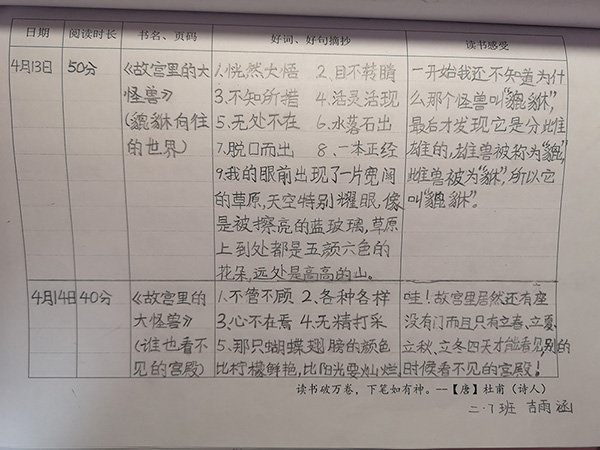 日期 阅读时长 书名、页码 好词、好句摘抄 读书感受
4月13日 50分
《故宫里的大
怪兽》
(貔貅向往
的世界)
1.恍然大悟 2.目不转睛
3.不知所措 4.活灵活现
5.无处不在 6.水落石出
7.脱口而出 8.一本正经
9.我的眼前出现了一片宽阔
的草原,天空特别耀眼,像
是被擦亮的蓝玻璃,草原
上到处都是五颜六色的
花朵,远处是高高的山。
一开始我还不知道为什
么那个怪兽叫“貔貅”,
最后才发现它是分雌
雄的,雄兽被称为“貔”,
雌兽被为“貅”,所以它
叫“貔貅”。
4月14日 40分
《故宫里的
大怪兽》
(谁也看不
见的宫殿)
1.不管不顾 2.各种各样
3.心不在焉 4.无精打采
5.那只蝴蝶翅膀的颜色
比柠檬鲜艳,比阳光要灿烂,
哇!故宫里居然还有座
没有门而且只有立春、立夏、
立秋、立冬四天才能看见,别的
时候看不见的宫殿!
读书破万卷，下笔如有神。--【唐】杜甫（诗人）
二.7班 吉雨涵